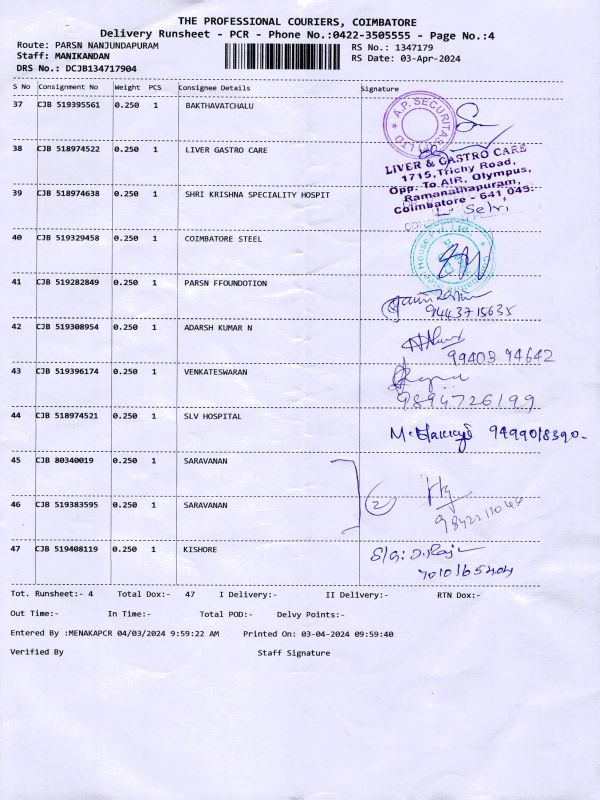 THE PROFESSIONAL COURIERS, COIMBATORE
Delivery Runsheet - PCR - Phone No.:0422-3505555 - Page No.:4
Route: PARSN NANJUNDAPURAM
Staff: MANIKANDAN
DRS No.: DCJB134717904
RS No.: 1347179
RS Date: 03-Apr-2024
S No Consignment No Weight PCS Consignee Details Signature
37 CJB 519395561 0.250 1 BAKTHAVATCHALU
A.P. SECURITAS LTD
38 CJB 518974522 0.250 1 LIVER GASTRO CARE
LIVER & GASTRO CARE
1715, Trichy Road,
Opp. To AIR, Olympus,
Ramanathapuram,
Coimbatore - 641 045.
39 CJB 518974638 0.250 1 SHRI KRISHNA SPECIALITY HOSPIT
L. Selvi
40 CJB 519329458 0.250 1 COIMBATORE STEEL
Coimbatore Steel House Pvt. Ltd.
41 CJB 519282849 0.250 1 PARSN FFOUNDOTION
9443715635
42 CJB 519308954 0.250 1 ADARSH KUMAR N
99403 94642
43 CJB 519396174 0.250 1 VENKATESWARAN
9894726199
44 CJB 518974521 0.250 1 SLV HOSPITAL
9499018390-
45 CJB 80340019 0.250 1 SARAVANAN
2
46 CJB 519383595 0.250 1 SARAVANAN
47 CJB 519408119 0.250 1 KISHORE
Tot. Runsheet:- 4 Total Dox:- 47 I Delivery:- II Delivery:- RTN Dox:-
Out Time:- In Time:- Total POD:- Delvy Points:-
Entered By :MENAKAPCR 04/03/2024 9:59:22 AM Printed On: 03-04-2024 09:59:40
Verified By Staff Signature